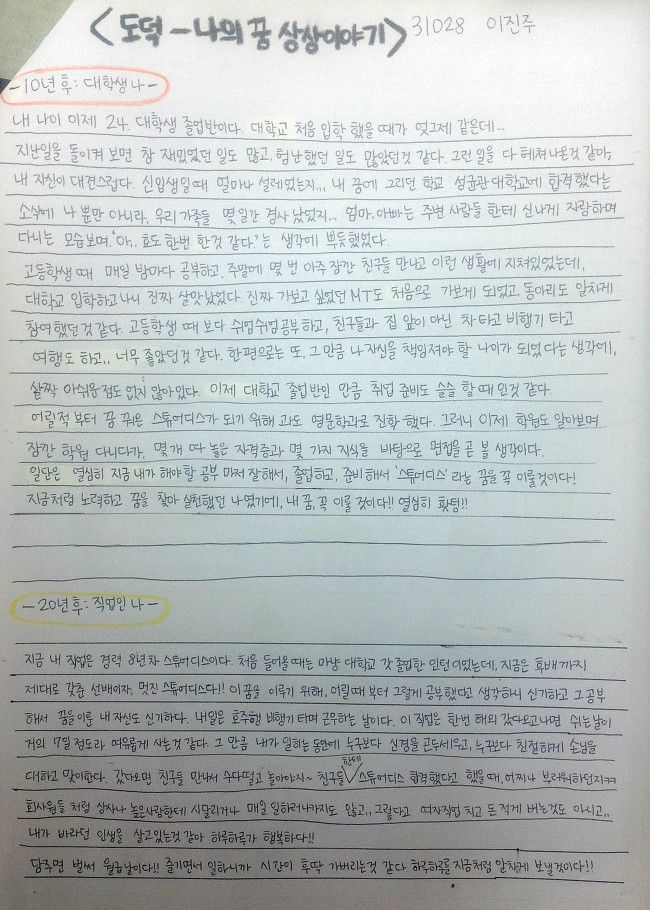 <도덕 - 나의 꿈 상상이야기> 31028 이진주
- 10년 후 : 대학생 나 -
내 나이 이제 24. 대학생 졸업반이다. 대학교 처음 입학 했을 때가 엊그제 같은데...
지난일을 돌이켜 보면 참 재밌었던 일도 많고, 험난했던 일도 많았던것 같다. 그런 일을 다 헤쳐나온것 같아,
내 자신이 대견스럽다. 신입생일때 얼마나 설레였는지... 내 꿈에 그리던 학교 성균관대학교에 합격했다는
소식에 나 뿐만 아니라, 우리 가족들 몇일간 경사 났었지... 엄마.아빠는 주변 사람들 한테 신나게 자랑하며
다니는 모습보며, '아.. 효도 한번 한것 같다.'는 생각에 뿌듯했었다.
고등학생 때 매일 밤마다 공부하고, 주말에 몇 번 아주 잠깐 친구들 만나고 이런 생활에 지쳐있었는데,
대학교 입학하고나니 진짜 살맛났었다. 진짜 가보고 싶었던 MT도 처음으로 가보게 되었고, 동아리도 알차게
참여했던것 같다. 고등학생 때 보다 쉬엄쉬엄공부하고, 친구들과 집 앞이 아닌 차 타고 비행기 타고
여행도 하고.. 너무 좋았던것 같다. 한편으로는 또, 그 만큼 나 자신을 책임져야 할 나이가 되었다는 생각에,
살짝 아쉬운점도 없지 않아있다. 이제 대학교 졸업반인 만큼 취업 준비도 슬슬 할 때 인것 같다.
어릴적 부터 꿈 꿔온 스튜어디스가 되기 위해 과도 영문학과로 진학 했다. 그러니 이제 학원도 알아보며
잠깐 학원 다니다가, 몇개 따 놓은 자격증과 몇 가지 지식을 바탕으로 면접을 곧 볼 생각이다.
일단은 열심히 지금 내가 해야할 공부 마저 잘해서, 졸업하고, 준비해서 '스튜어디스' 라는 꿈을 꼭 이룰것이다!
지금처럼 노력하고 꿈을 찾아 실천했던 나였기에, 내 꿈, 꼭 이룰 것이다!! 열심히 홧팅!!
- 20년 후 : 직업인 나 -
지금 내 직업은 경력 8년차 스튜어디스이다. 처음 들어올때는 마냥 대학교 갓 졸업한 인턴이었는데, 지금은 후배까지
제대로 갖춘 선배이자, 멋진 스튜어디스다!! 이 꿈을 이루기 위해, 어릴때 부터 그렇게 공부했다고 생각하니 신기하고 그 공부
해서 꿈을 이룬 내 자신도 신기하다. 내일은 호주행 비행기 타며 근무하는 날이다. 이 직업은 한번 해외 갔다오고나면 쉬는날이
거의 7일 정도라 여유롭게 사는것 같다. 그 만큼 내가 일하는 동안에 누구보다 신경을 곤두세우고, 누구보다 친절하게 손님을
대하고 맞이한다. 갔다오면 친구들 만나서 수다떨고 놀아야지~ 친구들한테 스튜어디스 합격했다고 했을때, 어찌나 부러워하던지ㅋㅋ
회사원들 처럼 상사나 높은사람한테 시달리거나 매일 일하러나가지도 않고,, 그렇다고 여자직업 치고 돈 적게 버는것도 아니고,,
내가 바라던 인생을 살고있는것 같아 하루하루가 행복하다!!
담주면 벌써 월급날이다!! 즐기면서 일하니까 시간이 후딱 가버리는것 같다 하루하루를 지금처럼 알차게 보낼것이다!!